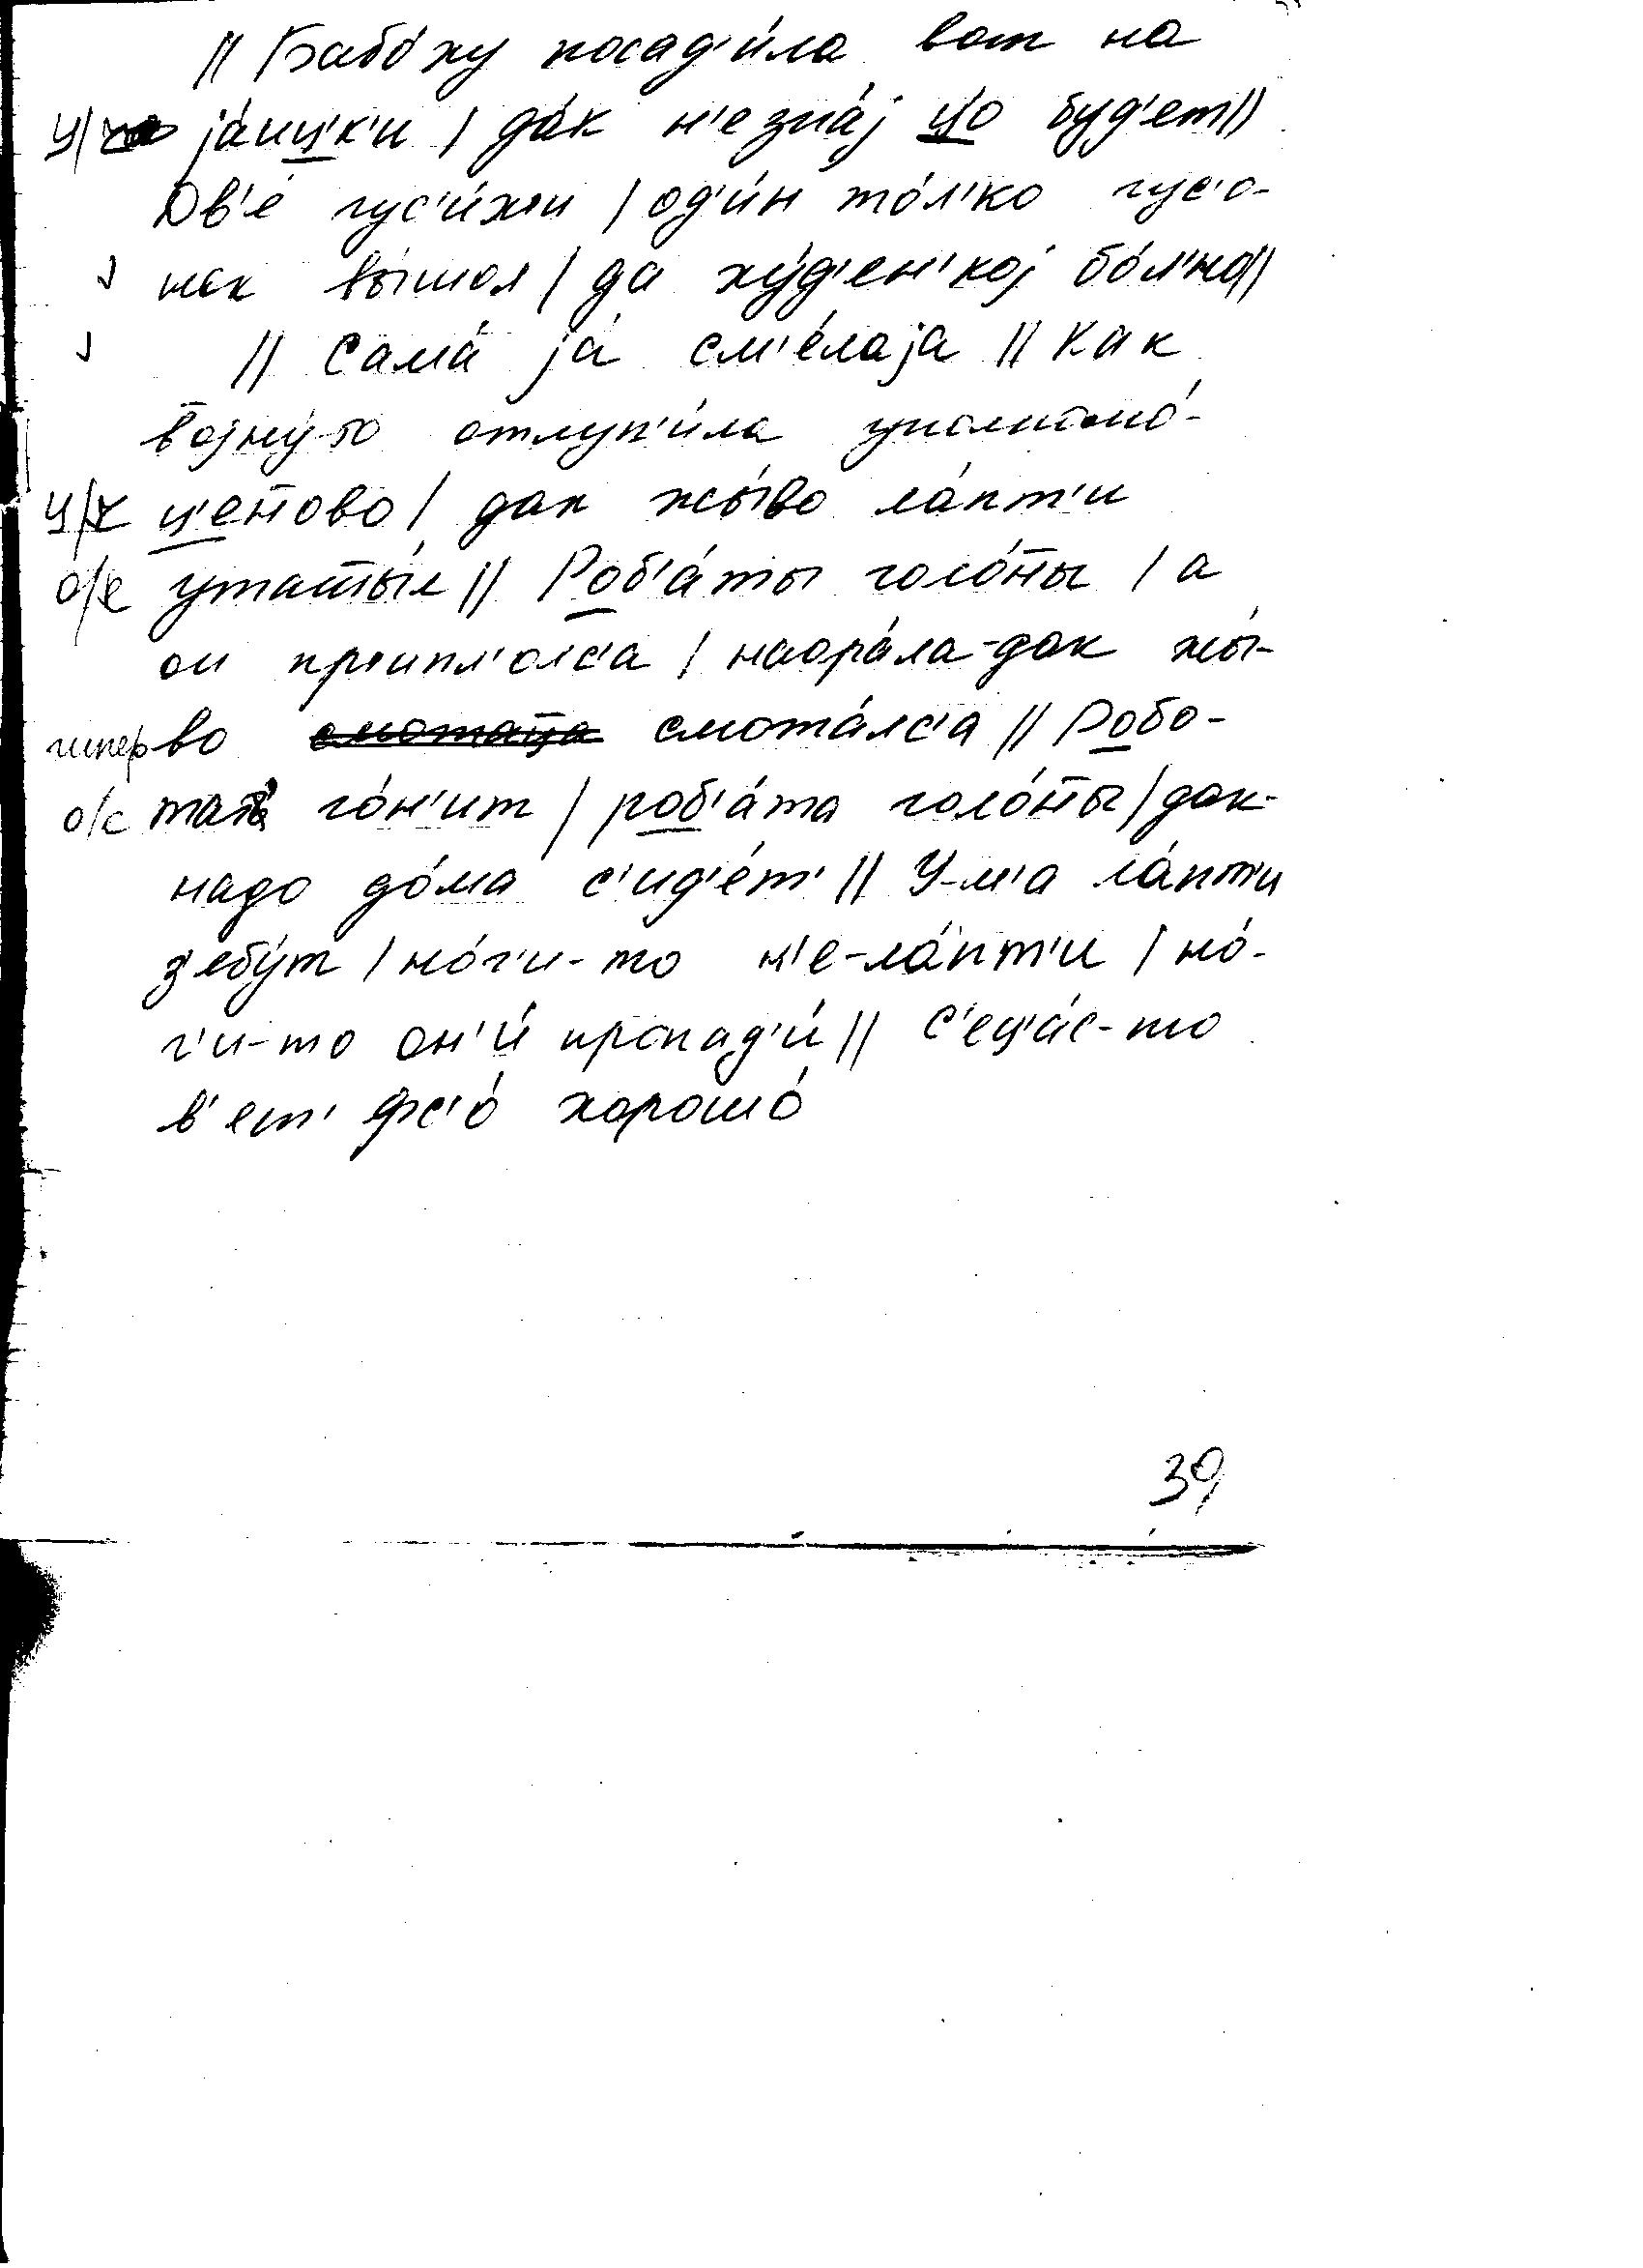 // Бабо́жу посад'и́ла вот на
ц/ч ја́иц'к'и / да́к н'е зна́ј цо буд'ет //
Дв'е́ гус'и́хи / од'и́н то́л'ко гус'о-
нок вы́шол / да ху́д'ен'кој бо́л'но //
// Сама́ ја́ см'е́лаја // Как
војну́-то отлуп'и́ла уполномо́-
ц/ч ц'еново / дак жы́во ла́пт'и
о/е утаты́л // Роб'а́ты голо́ны / а
он припл'о́лс'а / наора́ла-дак жы́-
гипер во смота́лс'а // Робо-
о/с тат' го́н'ит / роб'а́та голо́ны / дак-
надо до́ма с'ид'е́т' // У-м'а ла́пт'и
з'ебу́т / но́г'и-то н'е-ла́пт'и / но́-
г'и-то он'и́ пропад'и́ // С'ец'а́с-то
в'ет' фс'о́ хорошо́
39